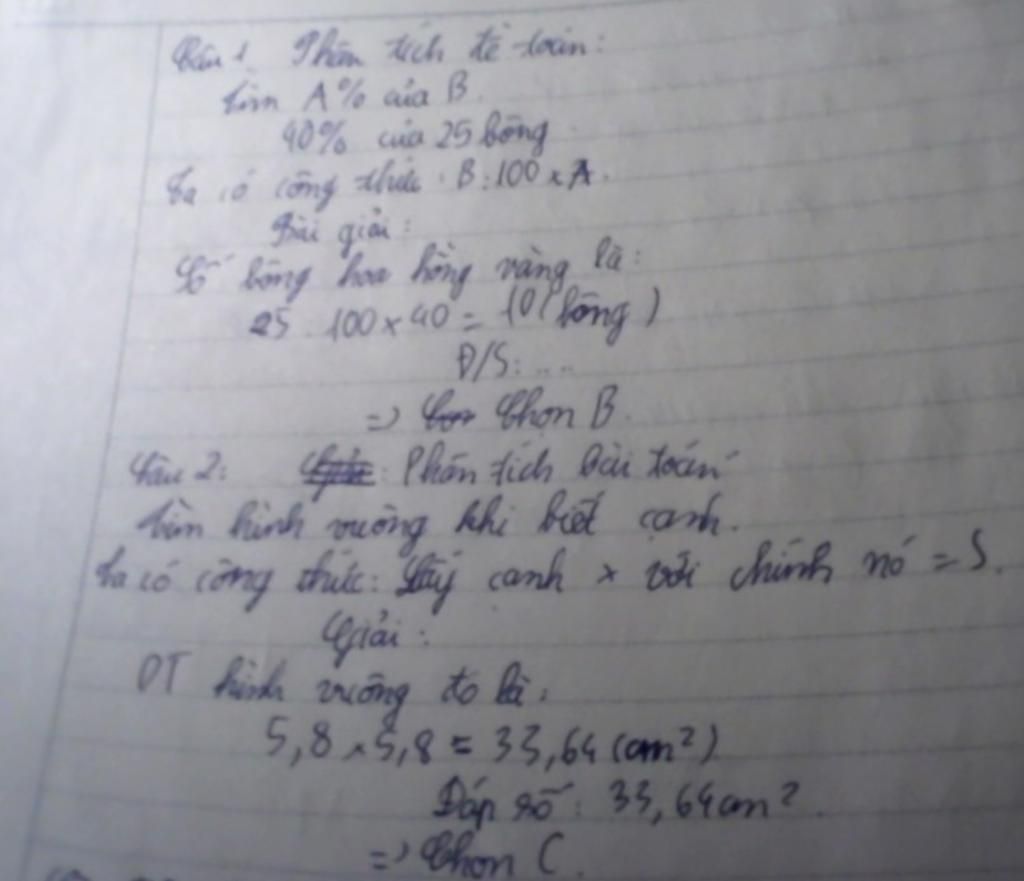 Câu 1. Phân tích đề toán:
Tìm A% của B.
40% của 25 bông
Ta có công thức: B:100 x A.
Bài giải:
Số bông hoa hồng vàng là:
25:100 x 40 = 10 (bông)
Đ/S: ....
=> Chọn B.
Câu 2: Phân tích bài toán
Tìm hình vuông khi biết cạnh.
Ta có công thức: Lấy cạnh x với chính nó = S.
Giải:
DT hình vuông đó là:
5,8 x 5,8 = 33,64 (cm²)
Đáp số: 33,64 cm².
=> Chọn C.